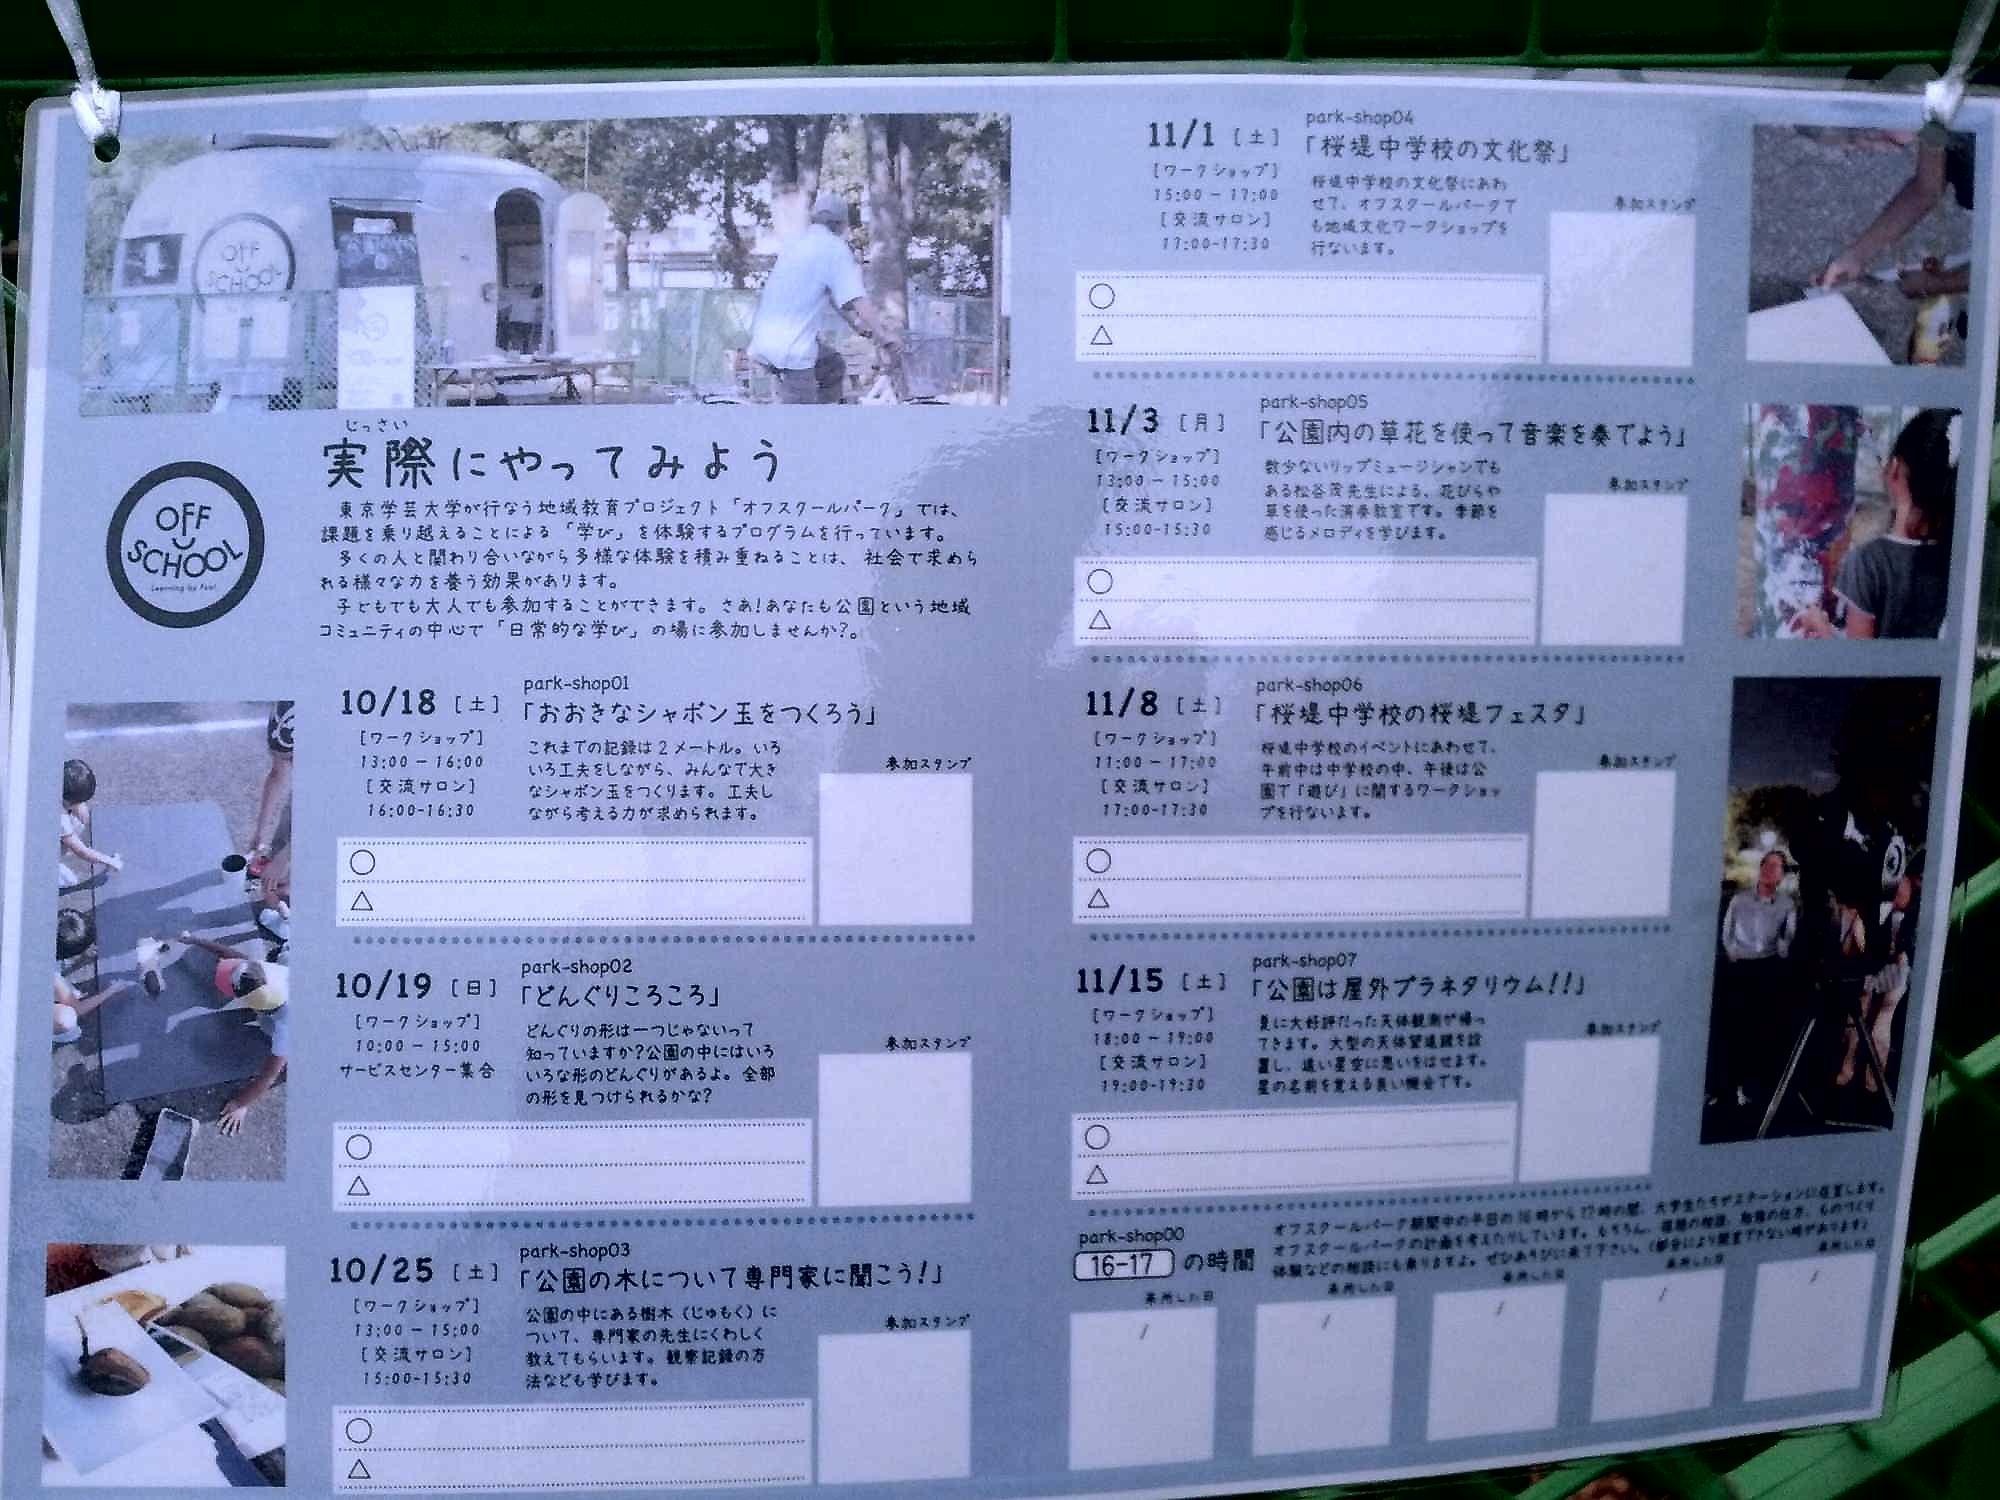 OFF
SCHOOL
じっさい
実際にやってみよう
OFF
SCHOOL
Learning by Fool
東京学芸大学が行なう地域教育プロジェクト「オフスクールパーク」では、
課題を乗り越えることによる「学び」を体験するプログラムを行っています。
多くの人と関わり合いながら多様な体験を積み重ねることは、社会で求めら
れる様々な力を養う効果があります。
子どもでも大人でも参加することができます。さあ!あなたも公園という地域
コミュニティの中心で「日常的な学び」の場に参加しませんか?。
10/18 [土]
park-shop01
「おおきなシャボン玉をつくろう」
[ワークショップ]
13:00 − 16:00
[交流サロン]
16:00-16:30
これまでの記録は2メートル。いろ
いろ工夫をしながら、みんなで大き
なシャボン玉をつくります。工夫し
ながら考える力が求められます。
参加スタンプ
○
△
10/19 [日]
park-shop02
「どんぐりころころ」
[ワークショップ]
10:00 − 15:00
サービスセンター集合
どんぐりの形は一つじゃないって
知っていますか?公園の中にはいろ
いろな形のどんぐりがあるよ。全部
の形を見つけられるかな?
参加スタンプ
○
△
10/25 [土]
park-shop03
「公園の木について専門家に聞こう!」
[ワークショップ]
13:00 − 15:00
[交流サロン]
15:00-15:30
公園の中にある樹木(じゅもく)に
ついて、専門家の先生にくわしく
教えてもらいます。観察記録の方
法なども学びます。
参加スタンプ
○
△
11/1 [土]
park-shop04
「桜堤中学校の文化祭」
[ワークショップ]
15:00 − 17:00
[交流サロン]
17:00-17:30
桜堤中学校の文化祭にあわ
せて、オフスクールパークで
も地域文化ワークショップを
行ないます。
参加スタンプ
○
△
11/3 [月]
park-shop05
「公園内の草花を使って音楽を奏でよう」
[ワークショップ]
13:00 − 15:00
[交流サロン]
15:00-15:30
数少ないリップミュージシャンでも
ある松谷茂先生による、花びらや
草を使った演奏教室です。季節を
感じるメロディを学びます。
参加スタンプ
○
△
11/8 [土]
park-shop06
「桜堤中学校の桜堤フェスタ」
[ワークショップ]
11:00 − 17:00
[交流サロン]
17:00-17:30
桜堤中学校のイベントにあわせて、
午前中は中学校の中、午後は公
園で「遊び」に関するワークショッ
プを行ないます。
参加スタンプ
○
△
11/15 [土]
park-shop07
「公園は屋外プラネタリウム!!」
[ワークショップ]
18:00 − 19:00
[交流サロン]
19:00-19:30
夏に大好評だった天体観測が帰っ
てきます。大型の天体望遠鏡を設
置し、遠い星空に思いをはせます。
星の名前を覚える良い機会です。
参加スタンプ
○
△
park-shop00
16-17 の時間
オフスクールパーク期間中の平日の16時から17時の間、大学生たちがステーションに在室します。
オフスクールパークの計画を考えたりしています。もちろん、宿題の相談、勉強の仕方、ものづくり
体験などの相談にも乗りますよ。ぜひあそびに来て下さい。(都合により開室できない時があります)
来所した日
来所した日
来所した日
来所した日
来所した日
/
/
/
/
/